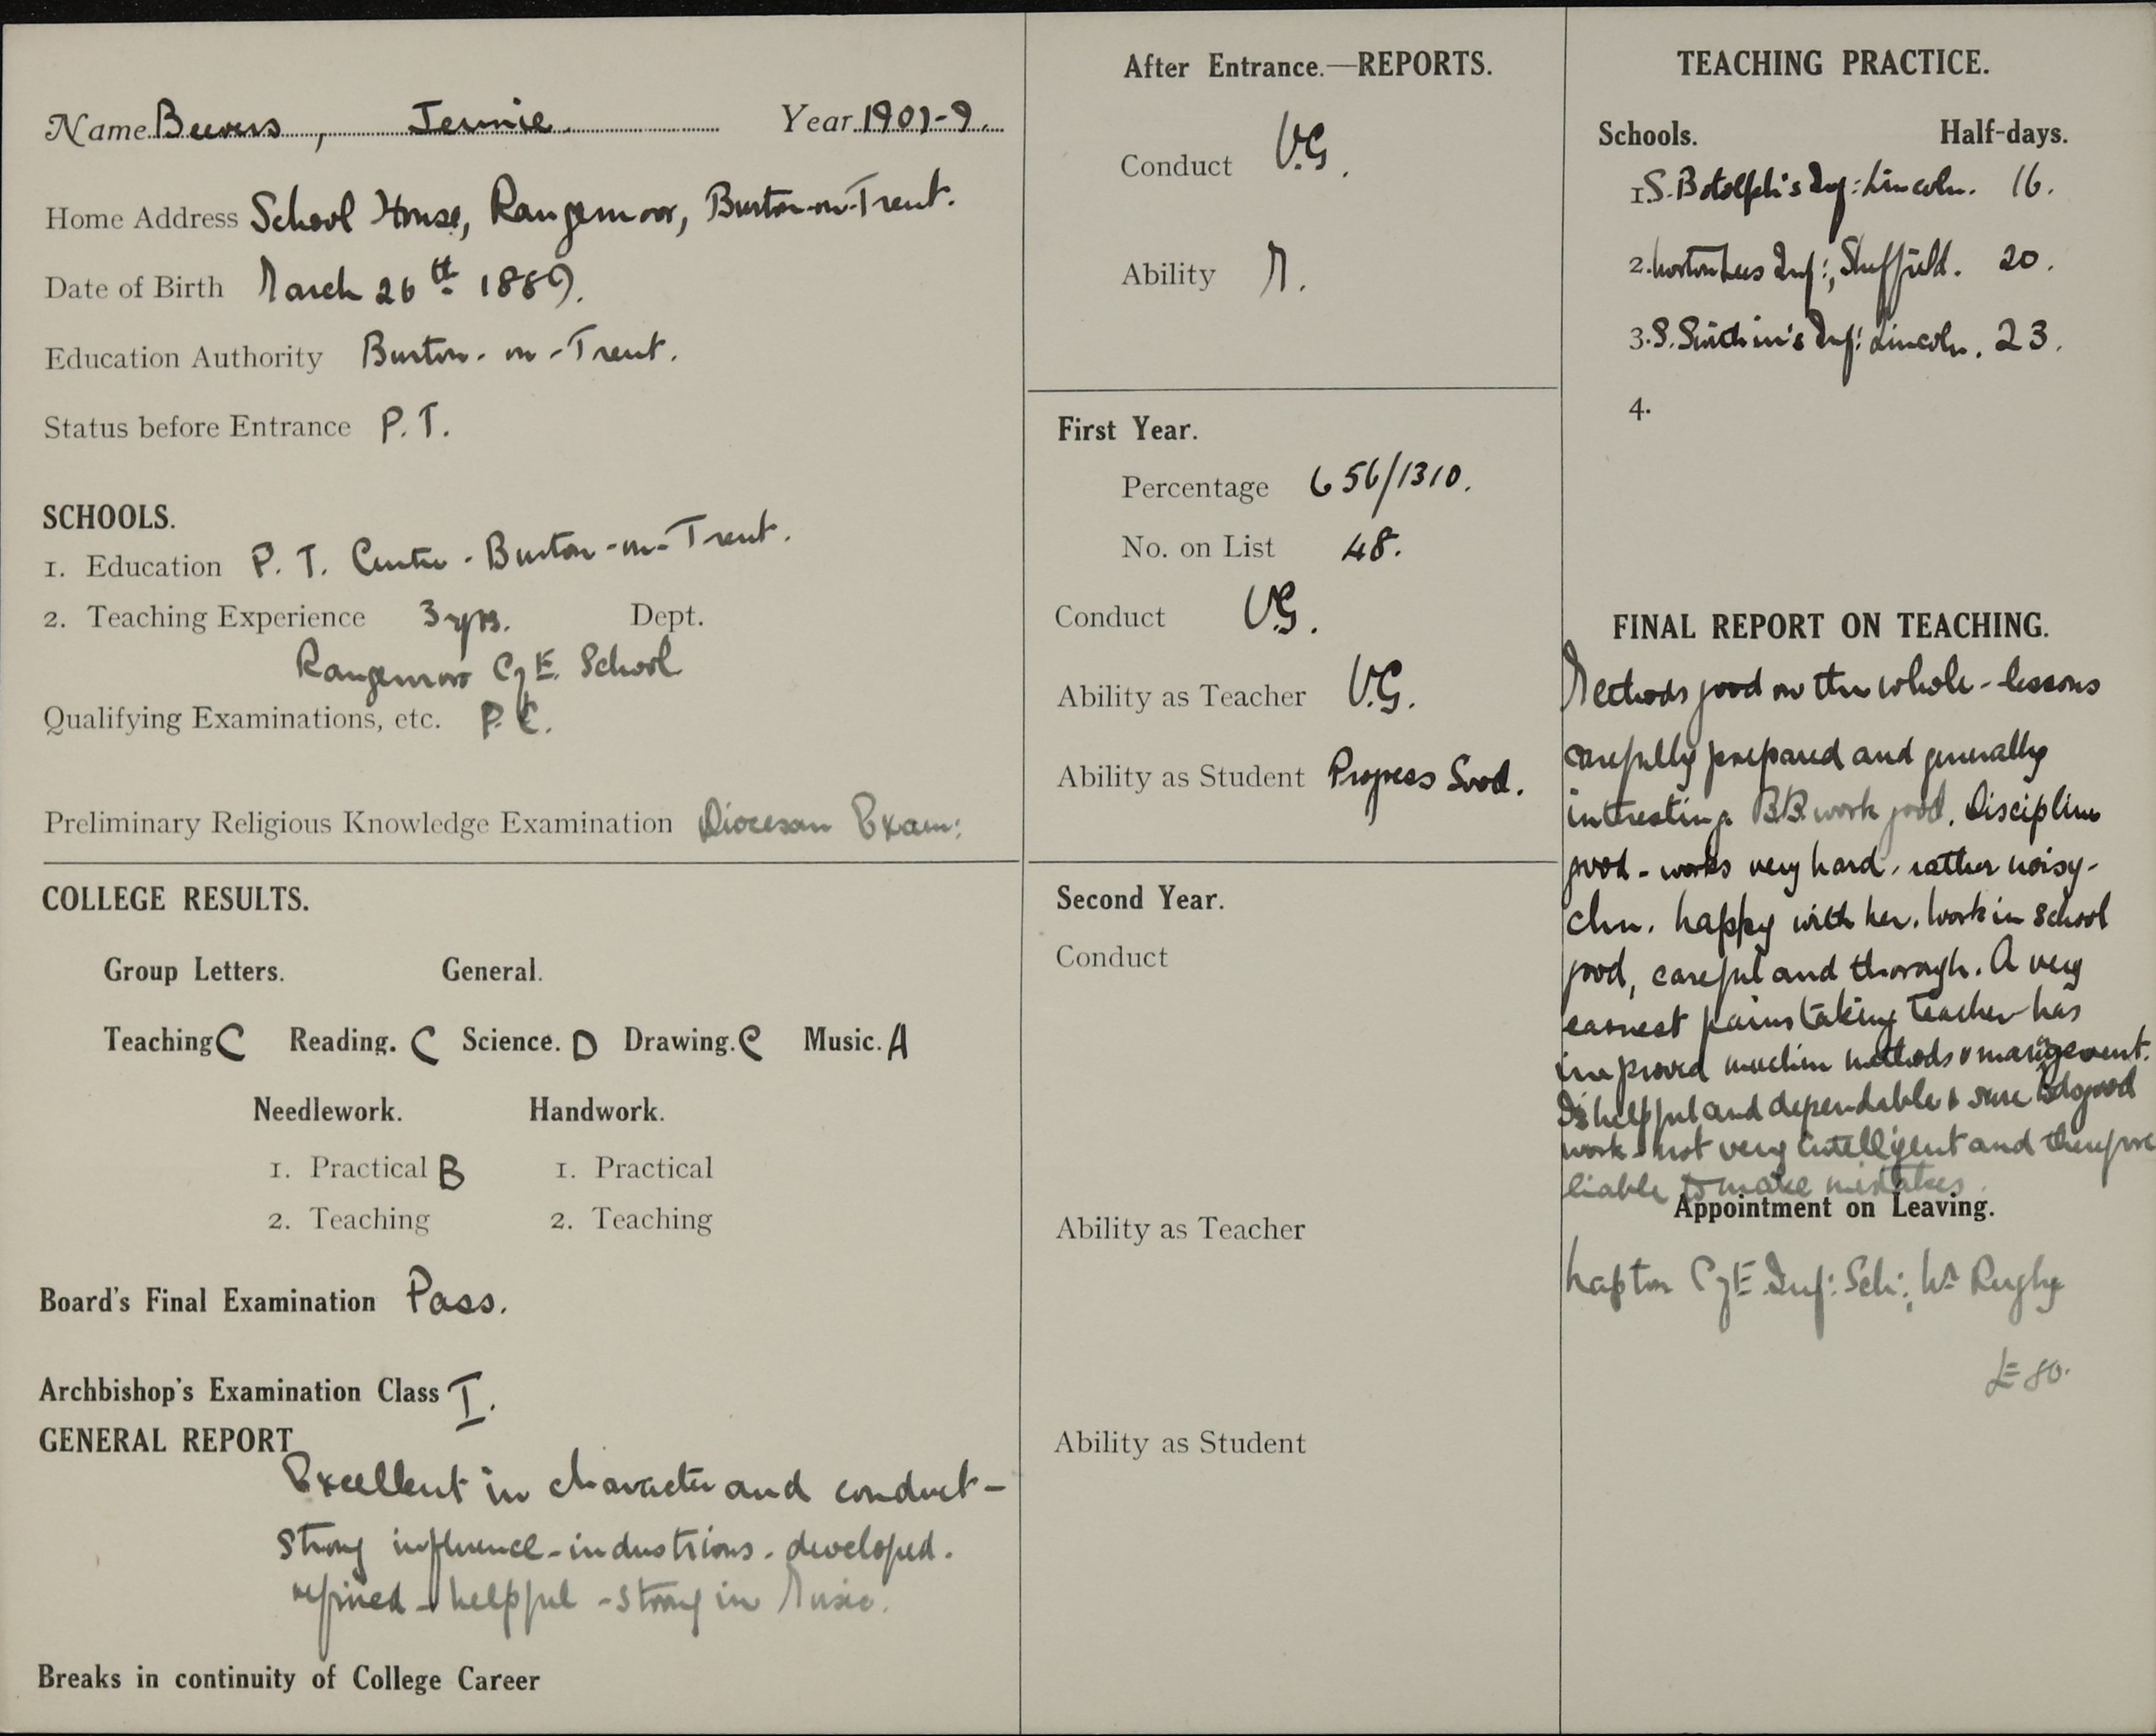 Name Beevers, Jennie. Year 1907-9.
Home Address School House, Rangemoor, Burton-on-Trent.
Date of Birth March 26th 1889.
Education Authority Burton-on-Trent.
Status before Entrance P.T.
SCHOOLS.
1. Education P. T. Centre - Burton-on-Trent.
2. Teaching Experience 3 yrs. Dept.
Rangemoor C of E. School
Qualifying Examinations, etc. P.C.
Preliminary Religious Knowledge Examination Diocesan Exam:
COLLEGE RESULTS.
Group Letters. General.
Teaching C Reading. C Science. D Drawing. C Music. A
Needlework. Handwork.
1. Practical B 1. Practical
2. Teaching 2. Teaching
Board's Final Examination Pass.
Archbishop's Examination Class I.
GENERAL REPORT
Excellent in character and conduct -
strong influence - industrious - developed.
refined - helpful - strong in Music.
Breaks in continuity of College Career
After Entrance.—REPORTS.
Conduct V.G.
Ability M.
First Year.
Percentage 656/1310.
No. on List 48.
Conduct V.G.
Ability as Teacher V.G.
Ability as Student Progress Good.
Second Year.
Conduct
Ability as Teacher
Ability as Student
TEACHING PRACTICE.
Schools. Half-days.
1. S. Botolph's Inf: Lincoln. 16.
2. Norton Lees Inf:, Sheffield. 20.
3. S. Swithin's Inf: Lincoln. 23.
4.
FINAL REPORT ON TEACHING.
Methods good on the whole - lessons
carefully prepared and generally
interesting. B.B. work good. Discipline
good - works very hard, rather noisy -
chn. happy with her. Work in school
good, careful and thorough. A very
earnest painstaking teacher - has
improved much in methods & management.
Is helpful and dependable & sure to do good
work - not very intelligent and therefore
liable to make mistakes.
Appointment on Leaving.
C of E Inf: Sch:, Nr Rugby
£80.